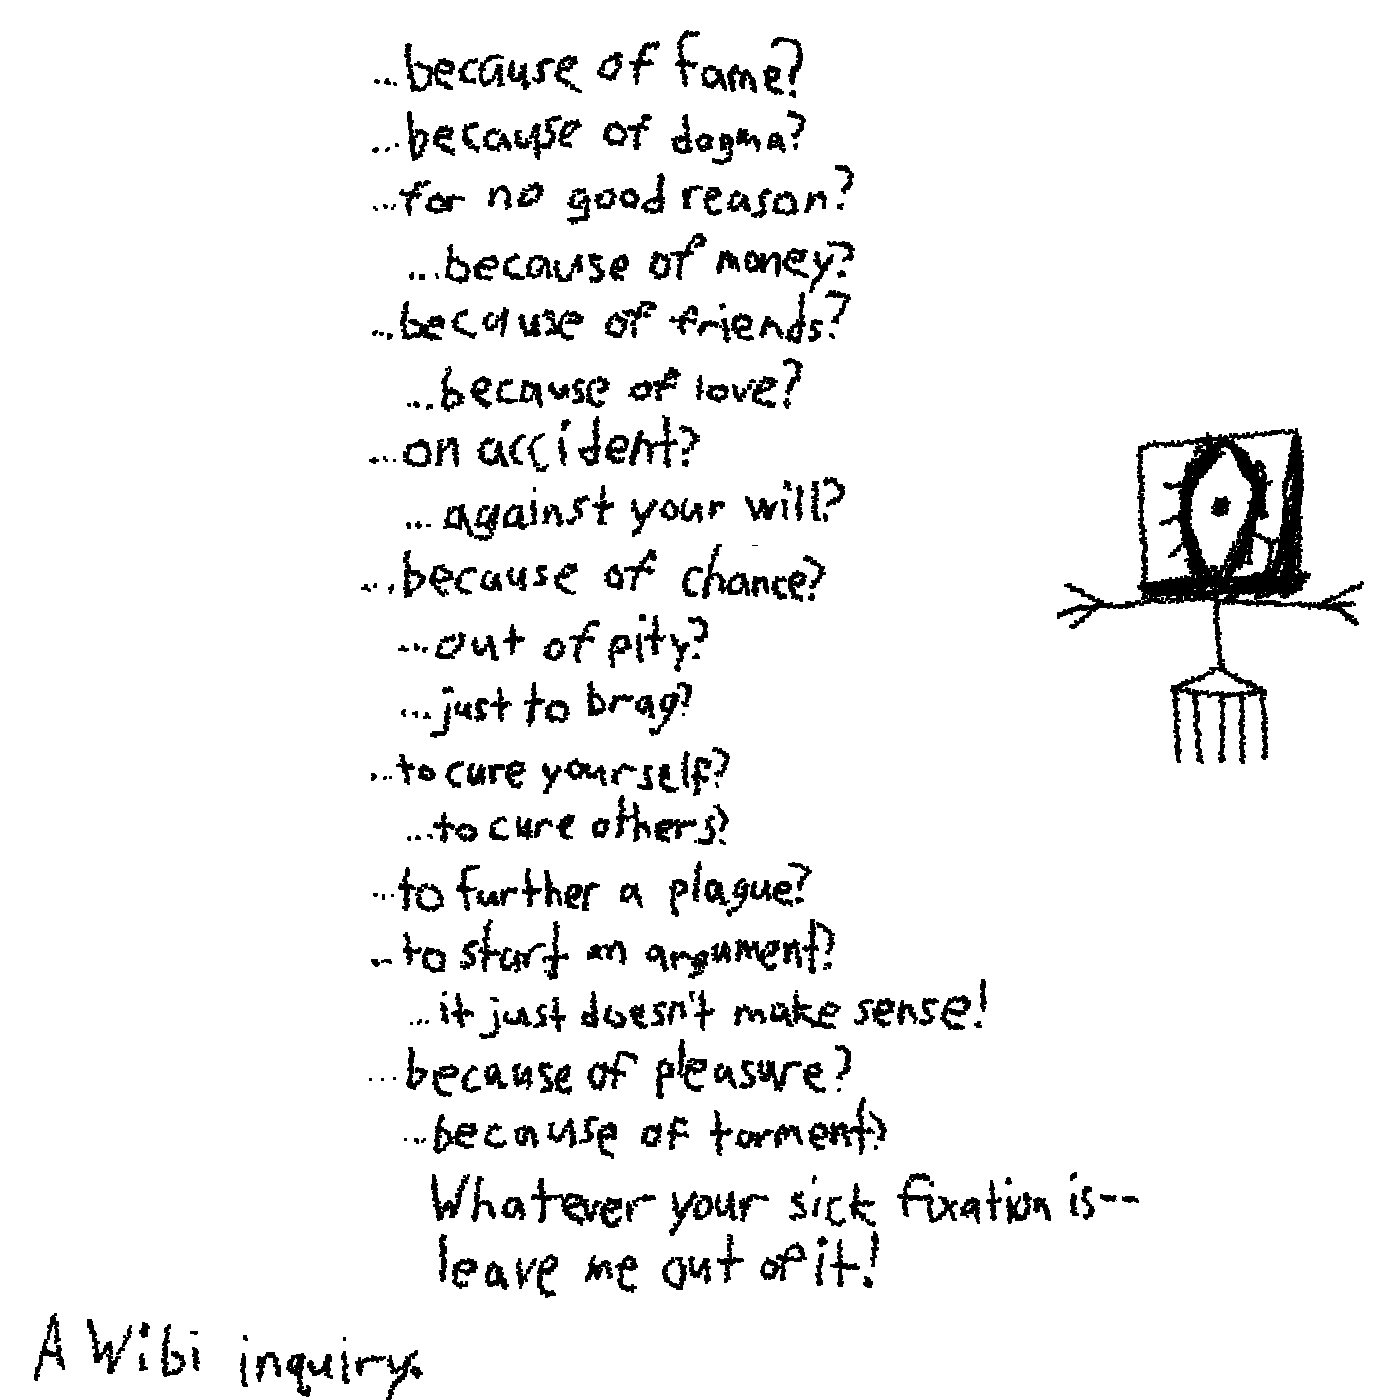 ...because of fame?
...because of dogma?
...for no good reason?
...because of money?
...because of friends?
...because of love?
...on accident?
...against your will?
...because of chance?
...out of pity?
...just to brag?
...to cure yourself?
...to cure others?
...to further a plague?
...to start an argument?
...it just doesn't make sense!
...because of pleasure?
...because of torment?
Whatever your sick fixation is--
leave me out of it!
A Wibi inquiry.